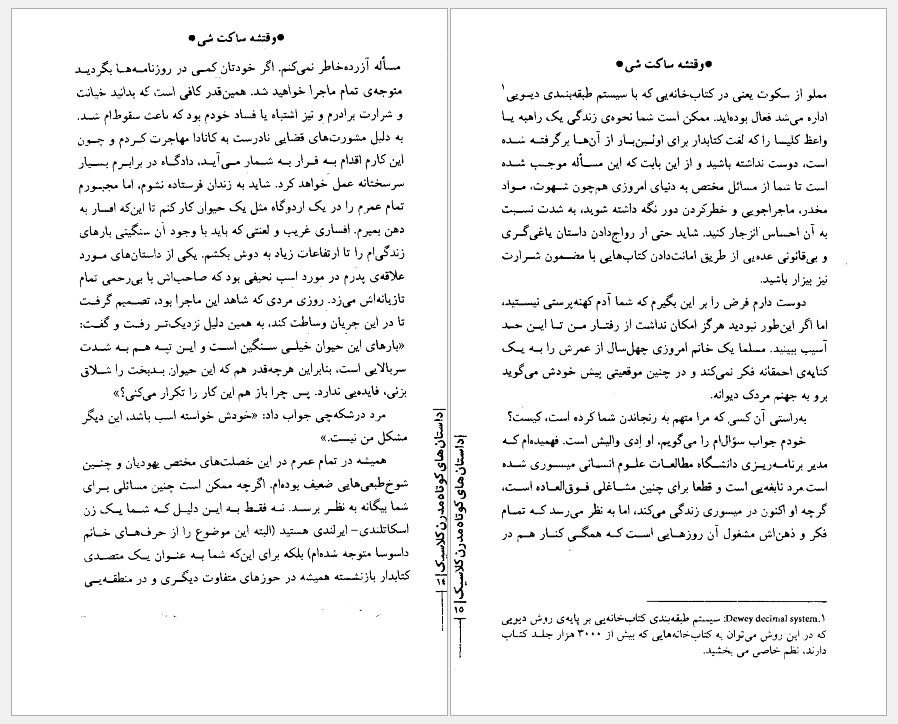 ●وقتشه ساکت شی●
مسأله آزرده‌خاطر نمی‌کنم. اگر خودتان کمی در روزنامه‌ها بگردید
متوجه‌ی تمام ماجرا خواهید شد. همین‌قدر کافی است که بدانید خیانت
و شرارت برادرم و نیز اشتباه یا فساد خودم بود که باعث سقوط‌ام شد.
به دلیل مشورت‌های قضایی نادرست به کانادا مهاجرت کردم و چون
این کارم اقدام به فرار به شمار می‌آید، دادگاه در برابرم بسیار
سرسختانه عمل خواهد کرد. شاید به زندان فرستاده نشوم، اما مجبورم
تمام عمرم را در یک اردوگاه مثل یک حیوان کار کنم تا این‌که افسار به
دهن بمیرم. افساری غریب و لعنتی که باید با وجود آن سنگینی بارهای
زندگی‌ام را تا ارتفاعات زیاد به دوش بکشم. یکی از داستان‌های مورد
علاقه‌ی پدرم در مورد اسب نحیفی بود که صاحب‌اش با بی‌رحمی تمام
تازیانه‌اش می‌زد. روزی مردی که شاهد این ماجرا بود، تصمیم گرفت
تا در این جریان وساطت کند، به همین دلیل نزدیک‌تر رفت و گفت:
«بارهای این حیوان خیلی سنگین است و این تپه هم به شدت
سربالایی است، بنابراین هرچه‌قدر هم که این حیوان بدبخت را شلاق
بزنی، فایده‌یی ندارد. پس چرا باز هم این کار را تکرار می‌کنی؟»
مرد درشکه‌چی جواب داد: «خودش خواسته اسب باشد، این دیگر
مشکل من نیست.»
همیشه در تمام عمرم در این خصلت‌های مختص یهودیان و چنین
شوخ‌طبعی‌هایی ضعیف بوده‌ام. اگرچه ممکن است چنین مسائلی برای
شما بیگانه به نظر برسد. نه فقط به این دلیل که شما یک زن
اسکاتلندی- ایرلندی هستید (البته این موضوع را از حرف‌های خانم
داسوسا متوجه شده‌ام) بلکه برای این‌که شما به عنوان یک متصدی
کتابدار بازنشسته همیشه در حوزهای متفاوت دیگری و در منطقه‌یی
|داستان‌های کوتاه مدرن کلاسیک|
●وقتشه ساکت شی●
مملو از سکوت یعنی در کتاب‌خانه‌یی که با سیستم طبقه‌بندی دیویی۱
اداره می‌شد فعال بوده‌اید. ممکن است شما نحوه‌ی زندگی یک راهبه یا
واعظ کلیسا را که لغت کتابدار برای اولین‌بار از آن‌ها برگرفته شده
است، دوست نداشته باشید و از این بابت که این مسأله موجب شده
است تا شما از مسائل مختص به دنیای امروزی هم‌چون شهوت، مواد
مخدر، ماجراجویی و خطرکردن دور نگه داشته شوید، به شدت نسبت
به آن احساس انزجار کنید. شاید حتی از رواج‌دادن داستان یاغی‌گری
و بی‌قانونی عده‌یی از طریق امانت‌دادن کتاب‌هایی با مضمون شرارت
نیز بیزار باشید.
دوست دارم فرض را بر این بگیرم که شما آدم کهنه‌پرستی نیستید،
اما اگر این‌طور نبودید هرگز امکان نداشت از رفتار من تا این حد
آسیب ببینید. مسلما یک خانم امروزی چهل‌سال از عمرش را به یک
کنایه‌ی احمقانه فکر نمی‌کند و در چنین موقعیتی پیش خودش می‌گوید
برو به جهنم مردک دیوانه.
به‌راستی آن کسی که مرا متهم به رنجاندن شما کرده است، کیست؟
خودم جواب سؤال‌ام را می‌گویم، او اِدی والیش است. فهمیده‌ام که
مدیر برنامه‌ریزی دانشگاه مطالعات علوم انسانی میسوری شده
است.مرد نابغه‌یی است و قطعا برای چنین مشاغلی فوق‌العاده است،
گرچه او اکنون در میسوری زندگی می‌کند، اما به نظر می‌رسد که تمام
فکر و ذهن‌اش مشغول آن روزهایی است که همگی کنار هم در
۱.Dewey decimal system: سیستم طبقه‌بندی کتاب‌خانه‌یی بر پایه‌ی روش دیویی
که در این روش می‌توان به کتاب‌خانه‌هایی که بیش از ۳۰۰۰ هزار جلد کتاب
دارند، نظم خاصی می بخشید.
|داستان‌های کوتاه مدرن کلاسیک|